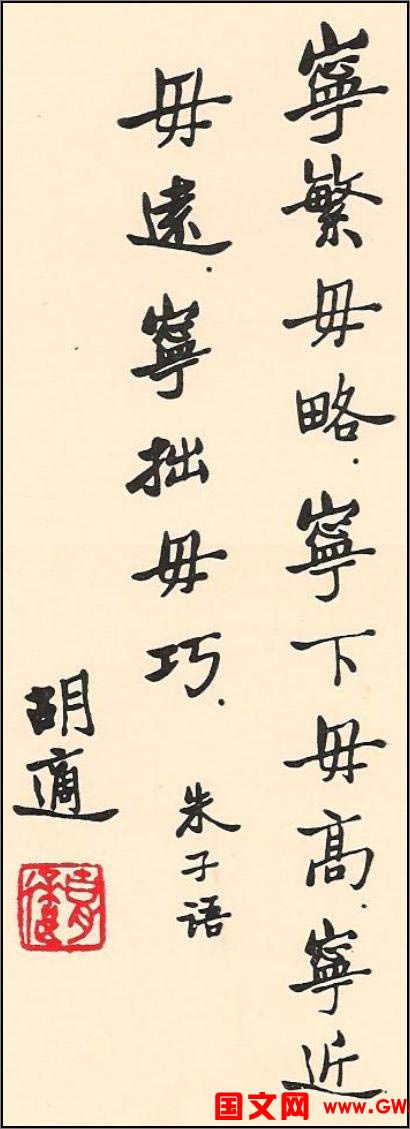 寧繁毋略.寧下毋高.寧近
毋遠.寧拙毋巧.
朱子语
胡適
国文网 www.GW